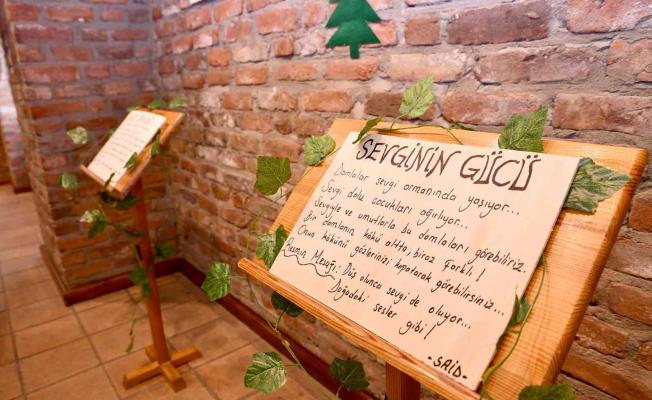 SEVGİNİN GÜCÜ
Damlalar sevgi ormanında yaşıyor...
Sevgi dolu çocukları ağırlıyor...
Sevgiyle ve umutlarla bu damlaları görebiliriz.
Bir damlanın kökü altta, biraz farklı!
Onun kökünü gözlerinizi kapatarak görebilirsiniz...
Resmin Mesajı: Düş olunca sevgi de oluyor...
Doğadaki sesler gibi!
-SAİD-